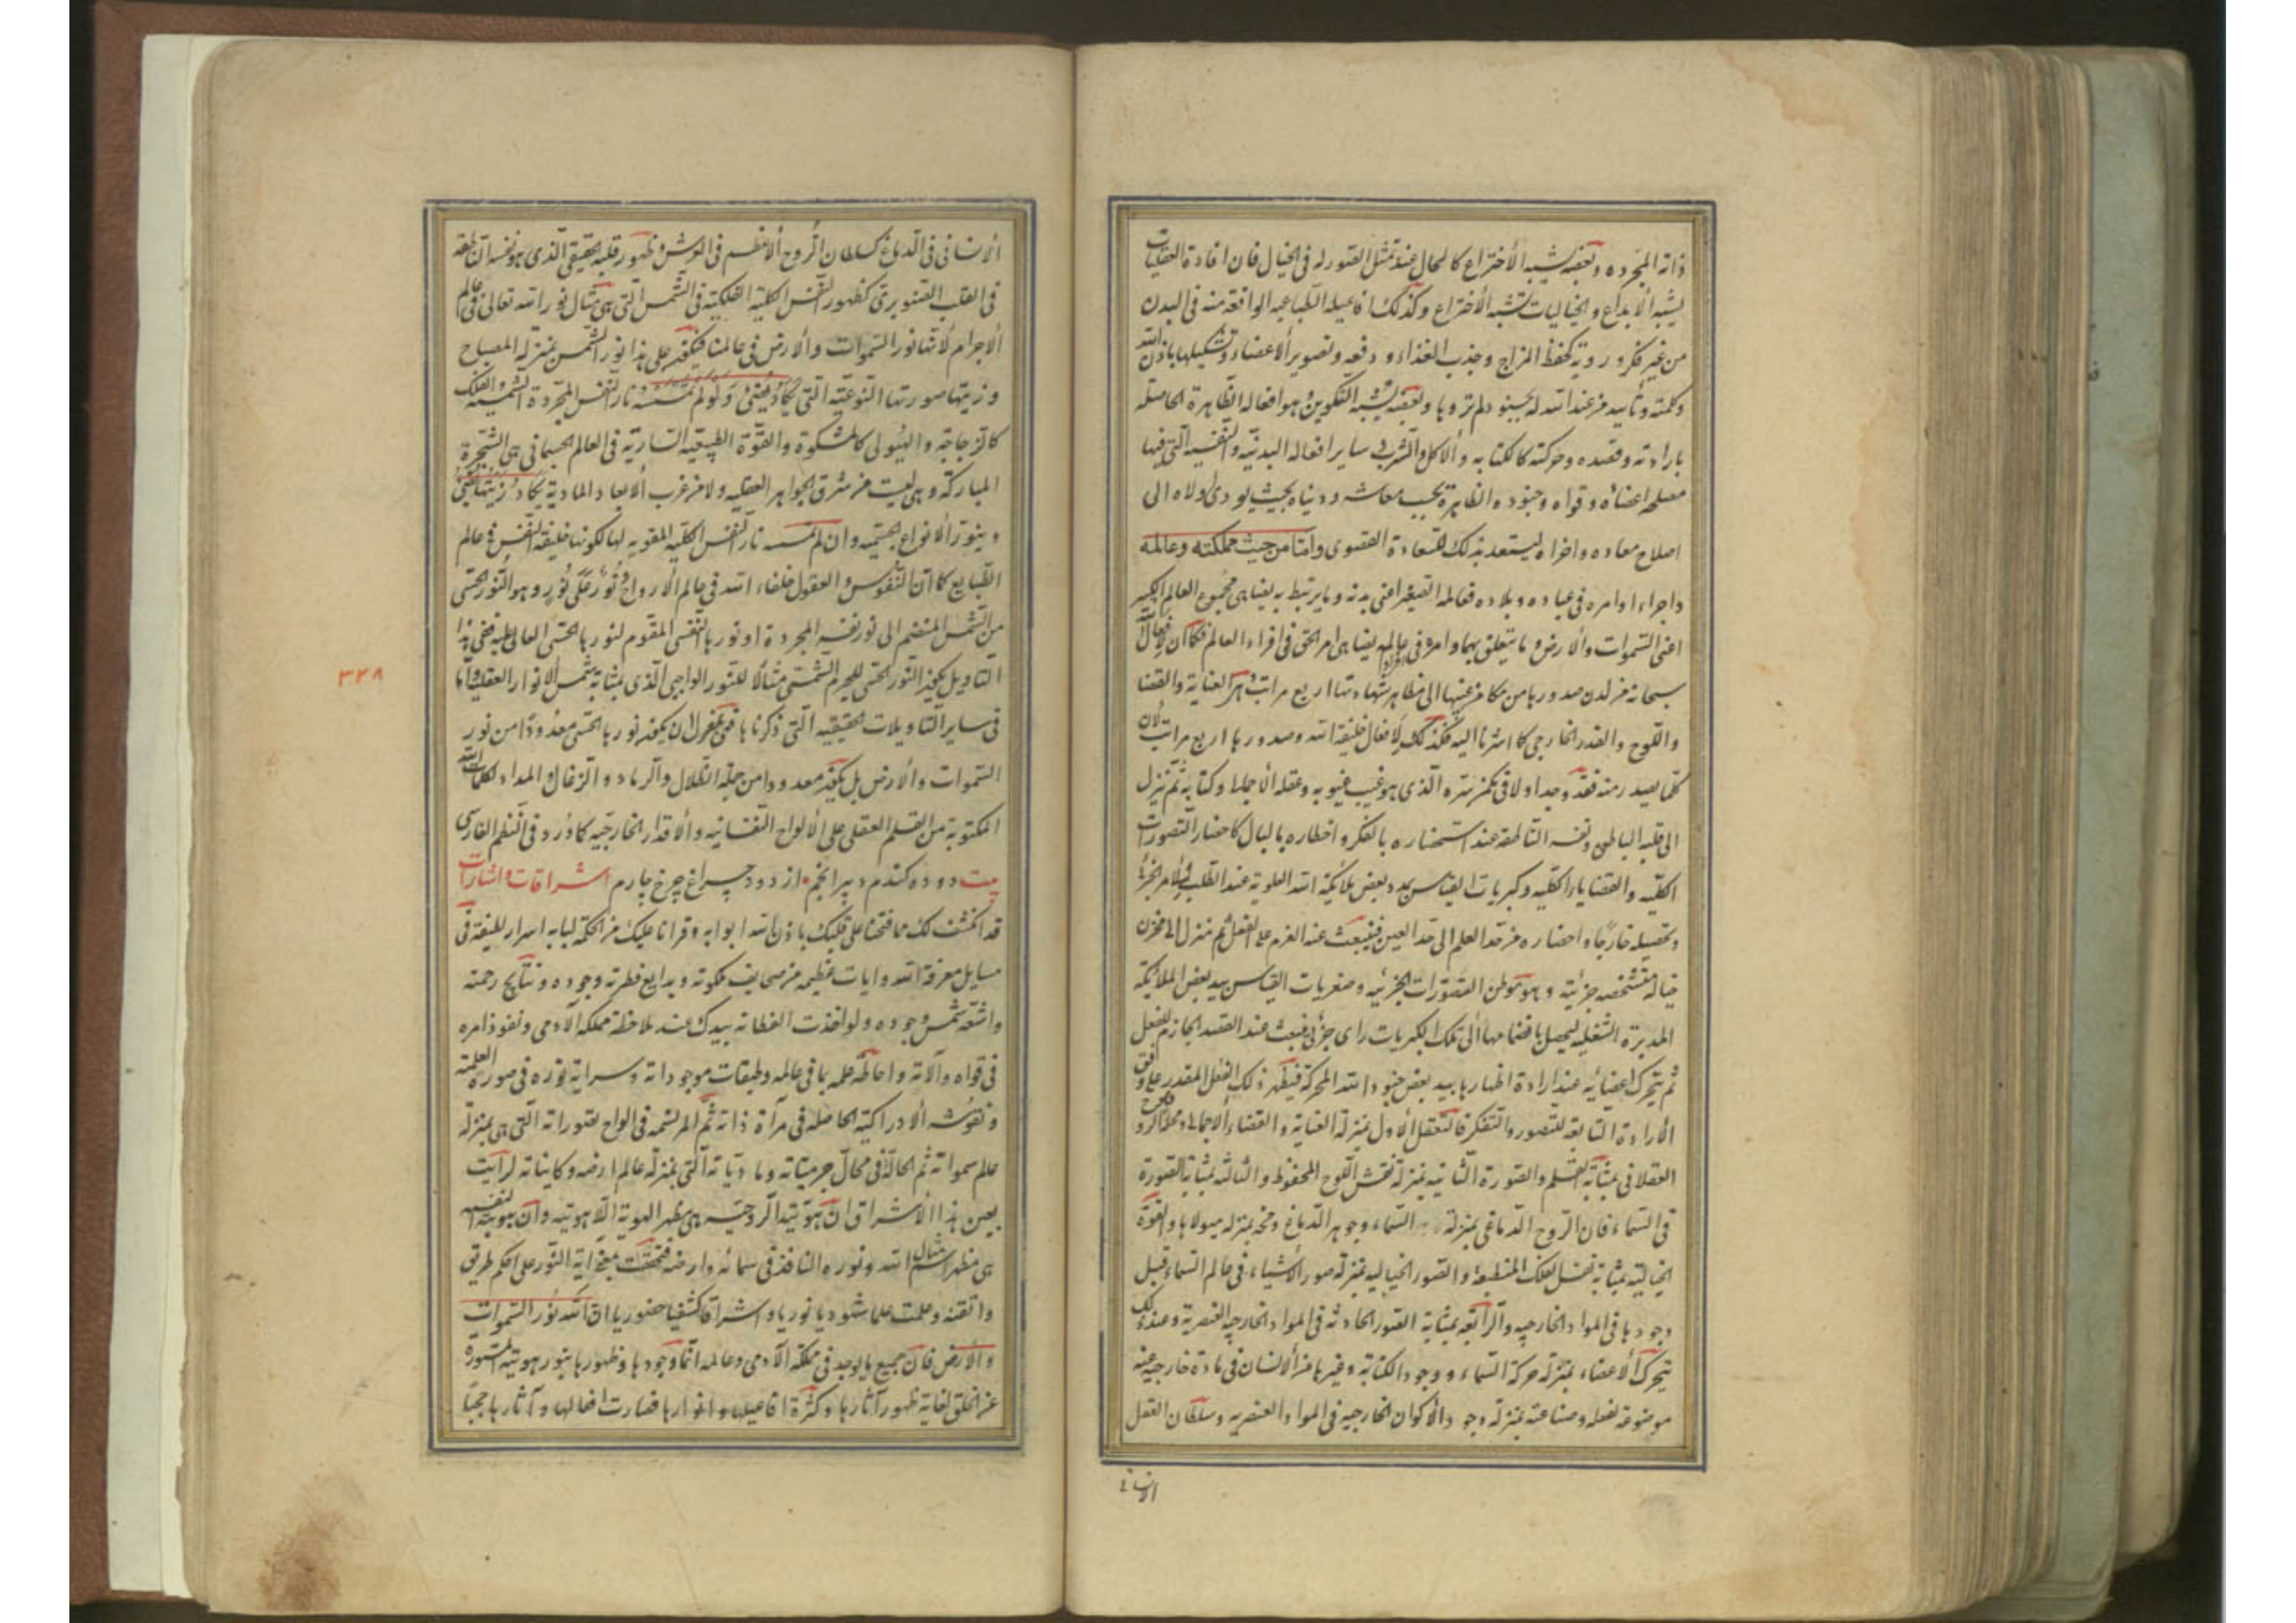 ذاته المجرده وبعضه يشبه الأختراع كالحال عند تمثل التصور له فى الخيال فان افادة العقليات
يشبه الأبداع والخياليات تشبه الأختراع وكذلك افاعيله الطباعيه الواقعة منه فى البدن
من غير فكر وروية كحفظ المزاج وجذب الغذاء و دفعه وتصوير الاعضاء وتشكيلها باذن الله
وكلمته وتأييد من عند الله له بجنود لم تروها وبعضه يشبه التكوين وهو افعاله الظاهرة الحاصله
بارادته وقصده وحركته كالكتابه والاكل والشرب فى ساير افعاله البدنيه والنفسيه التى فيها
مصلحه اعضائه وقواه وجنوده الظاهرة بحسب معاشه ودنياه بحيث يودى اولاه الى
اصلاح معاده واخراه ليستعد بذلك للسعادة القصوى وامّا من حيث مملكته وعالمه
واجراء اوامره فى عباده وبلاده فعالمه الصغير اعنى بدنه وما يرتبط به يضاهى مجموع العالم الكبير
اعنى السموات والارض وما يتعلق بهما وامره فى عالمه يضاهى امر الحق فى افراد العالم فكما ان لافعال
سبحانه من لدن صدورها من مكامن غيبها الى مظاهر شهادتها اربع مراتب هى العناية والقضا
واللوح والقدر الخارجى كما اشرنا اليه فكذلك لأفعال خليفة الله وصدورها اربع مراتب لان
كلما يصدر منه فقد وجد اولا فى مكمن سره الذى هو غيب غيوبه وعقله الاجمالى وكتابه ثم تنزل
الى قلبه الباطن ونفسه الناطقه عند استحضاره بالفكر واخطاره بالبال كاحضار التصورات
الكليه والقضايا الكليه وكبريات القياس بيد بعض ملائكة الله العلوية عند الطلب للأمر الجزئى
وتحصيله خارجا واحضاره من حد العلم الى حد العين فينبعث عنه العزم على الفعل ثم تنزل الى مخزن
خياله متشخصه جزئية وهو موطن التصورات الجزئيه وصغريات القياس بيد بعض الملائكة
المدبرة السفليه ليحصل بانضمامها الى تلك الكبريات راى جزئى ينبعث عنه القصد الجازم للفعل
ثم يتحرك اعضائه عند ارادة اظهارها بيد بعض جنود الله المحركة فيظهر ذلك الفعل المقدر على وفق
الأرادة التابعة للتصور والتفكر فالتعقل الأول بمنزلة العناية والقضاء الاجمالى ومحله الروح
العقلانى بمثابة القلم والصورة الثانيه بمنزلة نقش اللوح المحفوظ والثالثه بمثابة الصورة
فى السماء فان الروح الدماغى بمنزلة السماء وجوهر الدماغ ومخه بمنزلة هيولاها والقوة
الخياليه بمثابة نفس الفلك المنطبعة والصور الخياليه بمنزلة صور الأشياء فى عالم السماء قبل
وجودها فى المواد الخارجيه والرابعه بمثابة الصور الحادثه فى المواد الخارجيه العنصرية وعند ذلك
يتحرك الاعضاء بمنزلة حركة السماء ووجود الكتابة وغيرها من الأنسان فى مادة خارجيه عنه
موضوعه لفعله وصناعته بمنزلة وجود الأكوان الخارجيه فى المواد العنصريه وسلطان العقل
الانسانى
الأنسانى فى الدماغ كسلطان الروح الأعظم فى العرش وظهور قلبه الحقيقى الذى هو نفسه الناطقه
فى القلب الصنوبرى كظهور النفس الكلية الفلكيه فى الشمس التى هى مثال نور الله تعالى فى عالم
الأجرام لأنها نور السموات والأرض فى عالمنا فيكون على هذا نور الشمس بمنزلة المصباح
وزيتها صورتها النوعيّه التى يكاد يضئ ولو لم تمسسه نار النفس المجردة الشمسية والفلك
كالزجاجة والهيولى كالمشكوة والقوة الطبيعيه السارية فى العالم الجسمانى هى الشجرة
المباركة وهى ليست من شرق الجواهر العقليه ولا من غرب الأبعاد المادية يكاد زيتها يضئ
وينور الأنواع الجسميه وان لم تمسسه نار النفس الكليه المقويه لها لكونها خليفة النفس فى عالم
الطبايع كما ان النفوس والعقول خلفاء الله فى عالم الأرواح نُور عَلى نُور وهو النور الحسى
من الشمس المنضم الى نور نفسه المجردة او نورها النفسى المقوم لنورها الحسى العالى عليه ففى هذا
التاويل يكون النور الحسى للجرم الشمسى مثالا للنور الواجبى الذى بمثابة شمس الانوار العقلية وامّا
فى ساير التاويلات الحقيقيه التى ذكرناها فبمعزل ان يكون نورها الحسى معدودا من نور
السموات والأرض بل يكون معدودا من جملة الظلال والرماد والزغال والمداد لكلمات الله
المكتوبة من القلم العقلى على الألواح النفسانيه والاقدار الخارجيه كما ورد فى النظم الفارسى
بيت دوده كندم دبير انجم • از دود چراغ چرخ چارم اشراقات واشارات
قد انكشف لك مما فتحنا على قلبك باذن الله ابوابه وقرانا عليك من الحكمة لبابه اسرار لطيفة فى
مسايل معرفة الله وايات عظيمه من صحايف ملكوته وبدايع فطرته وجوده ونتايج رحمته
واشعة شمس وجوده ولو اخذت الفطانه بيدك عند ملاحظة مملكة الآدمى ونفوذ امره
فى قواه وآلاته واحاطة علمه بما فى عالمه وطبقات موجوداته وسراية نوره فى صوره العلمية
ونقوشه الأدراكية الحاصله فى مرآة ذاته ثم المرتسمه فى الواح تصوراته التى هى بمنزلة
عالم سمواته ثم الحالة فى محال جرميّاته وماديّاته التى بمنزلة عالم ارضه وكايناته لرأيت
بعين هذا الأشراق ان هويّته الروحيه هى مظهر الهوية الآهوتيه وان هويته النفسيه
هى مظهر اسم الله مثال ونوره النافذ فى سمائه وارضه فتحققت معنى آية النور على احكم طريق
واتقنه وعلمت علما شهوديا نوريا واشراقا كشفيا حضوريا ان الله نُور السموات
والأرض فان جميع ما يوجد فى مملكة الآدمى وعالمه انما وجودها وظهورها بنور هويته المستورة
عن الخلق لغاية ظهور آثارها وكثرة افاعيلها وانوارها فصارت افعالها وآثارها حجبا
٣٣٨